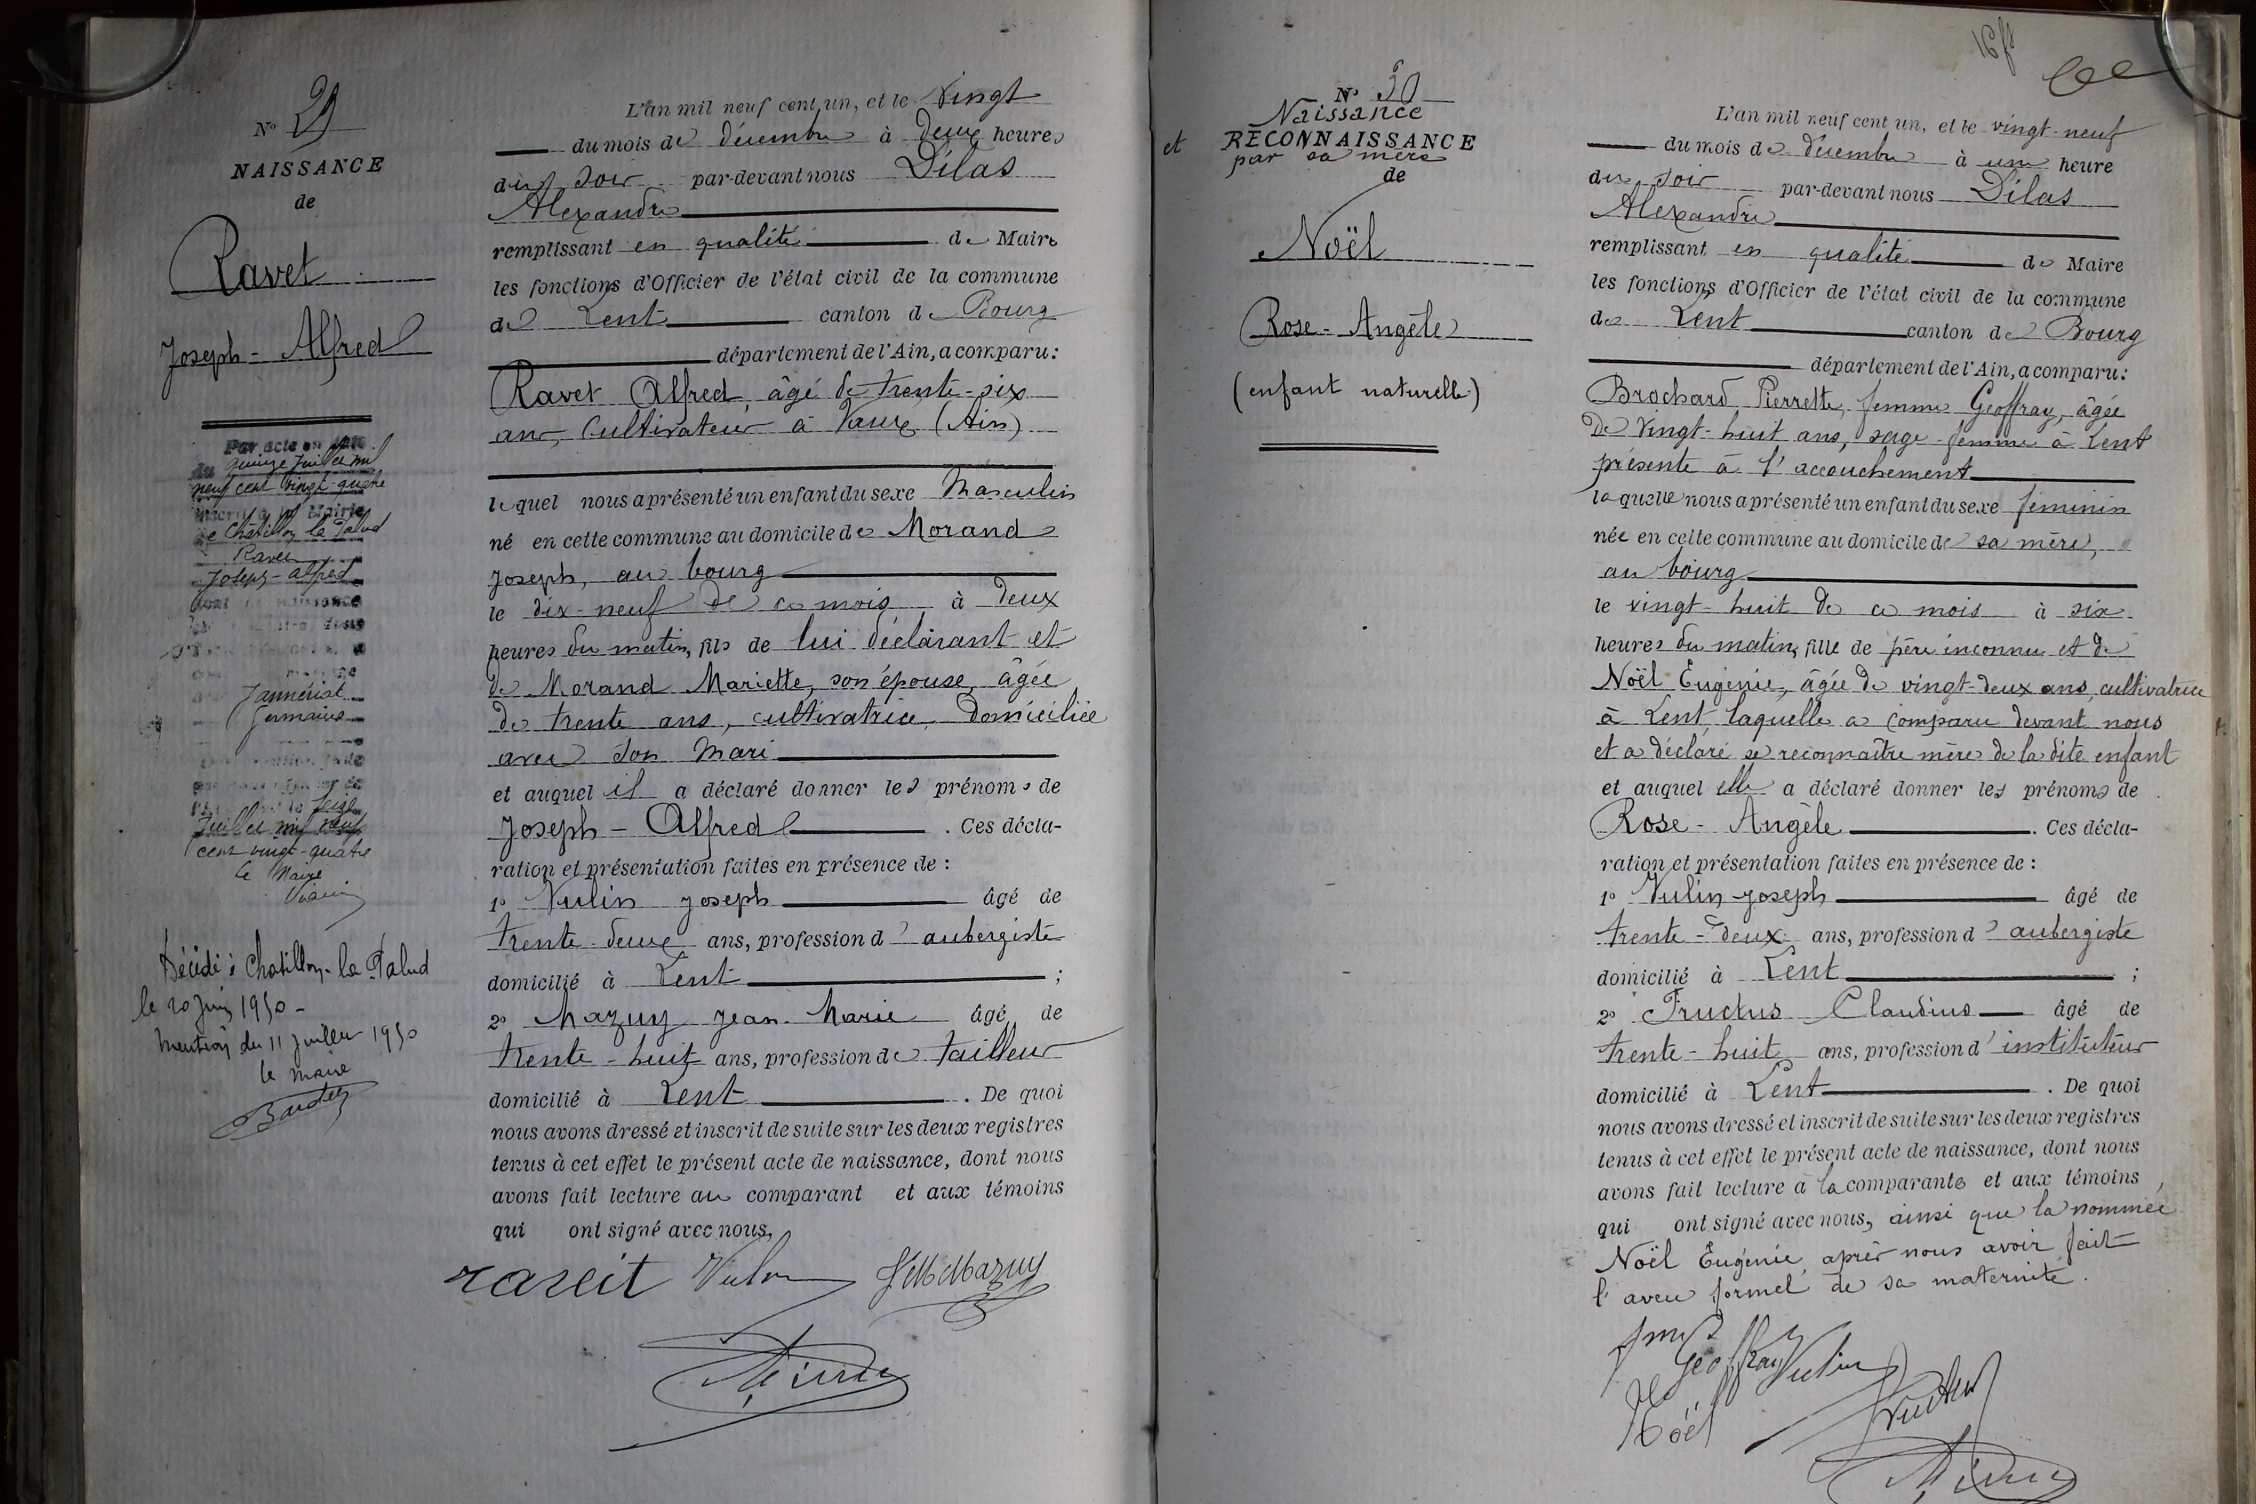 N° 29
NAISSANCE
de
Ravet
Joseph - Alfred
Par acte en date
du quinze Juillet mil
neuf cent vingt-quatre
inscrit à la Mairie
de Châtillon la Palud
Ravet
Joseph-alfred
dont la naissance
Germaine
seize
Juillet mil neuf
cent vingt-quatre
le Maire
Décédé à Chatillon-la Palud
le 20 Juin 1950 -
Mention du 11 juillet 1950
le maire
L'an mil neuf cent un, et le Vingt
du mois de décembre à deux heures
du soir par-devant nous Dilas
Alexandre
remplissant en qualité de Maire
les fonctions d'Officier de l'état civil de la commune
de Lent canton de Bourg
département de l'Ain, a comparu:
Ravet Alfred, âgé de trente-six
ans, cultivateur à Vaux (Ain)
lequel nous a présenté un enfant du sexe Masculin
né en cette commune au domicile de Morand
Joseph, au bourg
le dix-neuf de ce mois à deux
heures du matin, fils de lui déclarant et
de Morand Mariette, son épouse, âgée
de trente ans, cultivatrice, domiciliée
avec son mari
et auquel il a déclaré donner les prénoms de
Joseph - Alfred . Ces décla-
ration et présentation faites en présence de :
1° Vulin Joseph âgé de
trente-deux ans, profession d'aubergiste
domicilié à Lent ;
2° Mazuy Jean-Marie âgé de
trente-huit ans, profession de tailleur
domicilié à Lent . De quoi
nous avons dressé et inscrit de suite sur les deux registres
tenus à cet effet le présent acte de naissance, dont nous
avons fait lecture au comparant et aux témoins
qui ont signé avec nous,
raveit Vulin JM Mazuy
N° 30
Naissance
et RECONNAISSANCE
par sa mère
de
Noël
Rose - Angèle
(enfant naturelle)
L'an mil neuf cent un, et le vingt-neuf
du mois de décembre à une heure
du soir par-devant nous Dilas
Alexandre
remplissant en qualité de Maire
les fonctions d'Officier de l'état civil de la commune
de Lent canton de Bourg
département de l'Ain, a comparu:
Brochard Pierrette, femme Geoffray, âgée
de vingt-huit ans, sage-femme à Lent
présente à l'accouchement
laquelle nous a présenté un enfant du sexe féminin
née en cette commune au domicile de sa mère,
au bourg
le vingt-huit de ce mois à six
heures du matin, fille de père inconnu et de
Noël Eugénie, âgée de vingt-deux ans, cultivatrice
à Lent, laquelle a comparu devant nous
et a déclaré se reconnaître mère de la dite enfant
et auquel elle a déclaré donner les prénoms de
Rose - Angèle . Ces décla-
ration et présentation faites en présence de :
1° Vulin Joseph âgé de
trente-deux ans, profession d'aubergiste
domicilié à Lent ;
2° Fructus Claudius âgé de
trente-huit ans, profession d'instituteur
domicilié à Lent . De quoi
nous avons dressé et inscrit de suite sur les deux registres
tenus à cet effet le présent acte de naissance, dont nous
avons fait lecture à la comparante et aux témoins
qui ont signé avec nous, ainsi que la nommée
Noël Eugénie, après nous avoir fait
l'aveu formel de sa maternité.
Geoffray Vulin
Noël Fructus